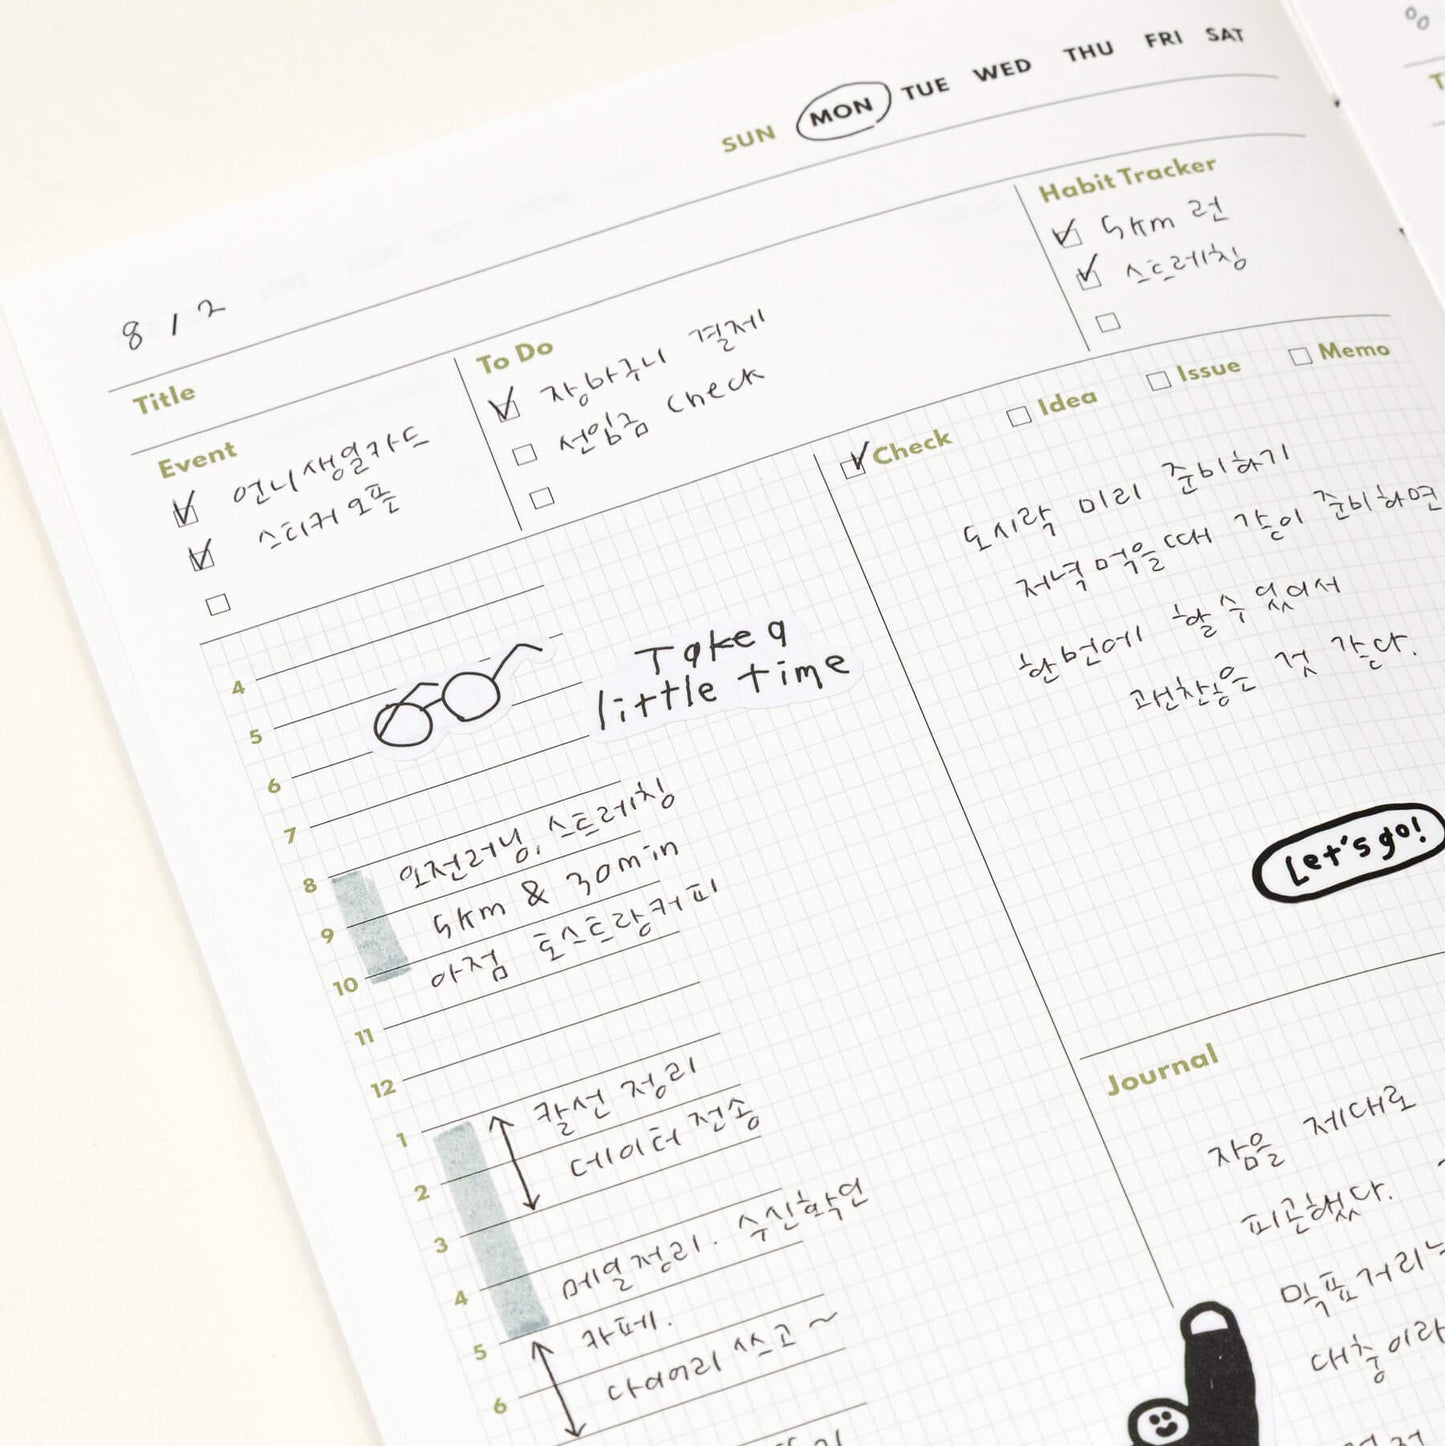 SUN MON TUE WED THU FRI SAT
8 / 2
Title
Event
언니생일카드
스티커오픈
To Do
장바구니 결제
선입금 check
Habit Tracker
5km 런
스트레칭
Check Idea Issue Memo
도시락 미리 준비하기
저녁먹을때 같이 준비하면
한번에 할 수 있어서
괜찮을 것 같다.
Let's go!
Take a
little time
4
5
6
7
8 오전러닝, 스트레칭
9 5km & 30min
10 아점 토스트랑커피
11
12
1 칼선 정리
2 데이터 전송
3
4 메일정리. 수신확인
5 카페.
6 다이어리 쓰고~
Journal
잠을 제대로
피곤했다.
대충이라